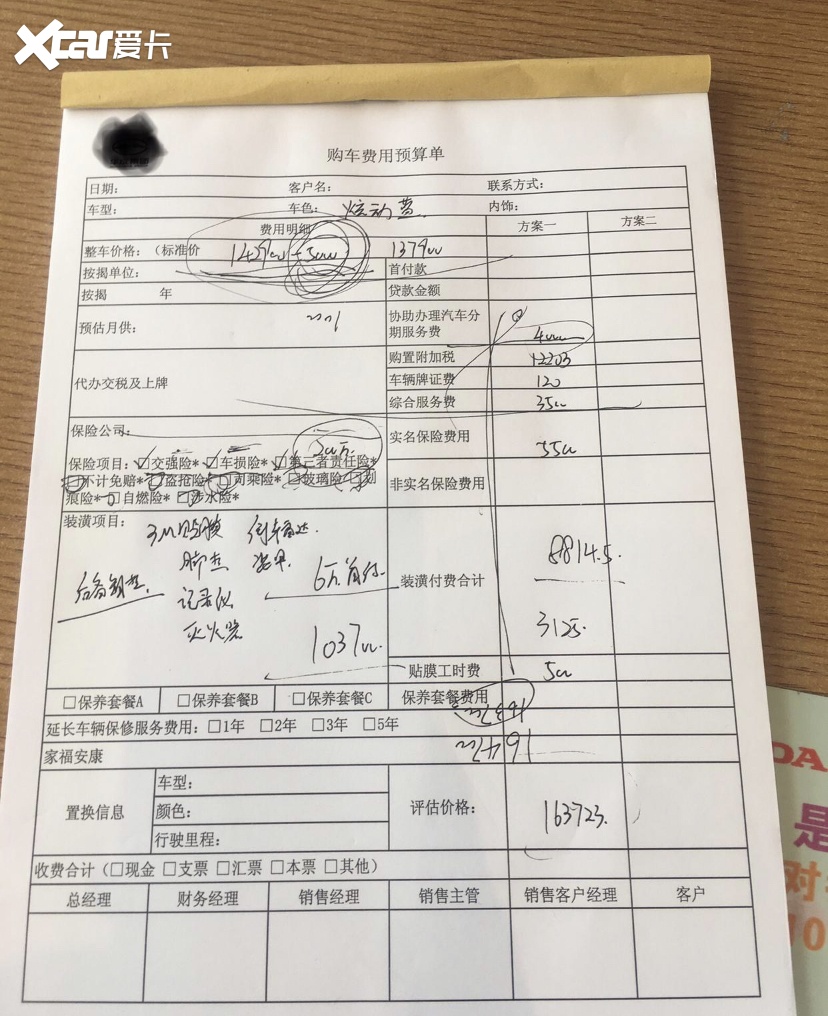 Xcar爱卡
购车费用预算单
日期： 客户名： 联系方式：
车型： 车色： 炫动蓝 内饰：
费用明细 方案一 方案二
整车价格：（标准价 142900 -5000 137900
按揭单位： 首付款
按揭 年 贷款金额
预估月供： 协助办理汽车分期服务费 4000
代办交税及上牌 购置附加税 12203
车辆牌证费 120
综合服务费 3500
保险公司： 实名保险费用 5500
保险项目：☑交强险* ☑车损险* ☑第三者责任险*
□不计免赔* □盗抢险* □司乘险* □玻璃险 □划
痕险* □自燃险* □涉水险* 非实名保险费用
装潢项目： 3M贴膜 倒车雷达
脚垫 装甲 6万首付 装潢付费合计 8814.5
记录仪
灭火器 103700 3125
贴膜工时费 500
□保养套餐A □保养套餐B □保养套餐C 保养套餐费用
延长车辆保修服务费用：□1年 □2年 □3年 □5年
家福安康
置换信息 车型： 评估价格： 163723
颜色：
行驶里程：
收费合计（□现金 □支票 □汇票 □本票 □其他）
总经理 财务经理 销售经理 销售主管 销售客户经理 客户
DA
是
对
10